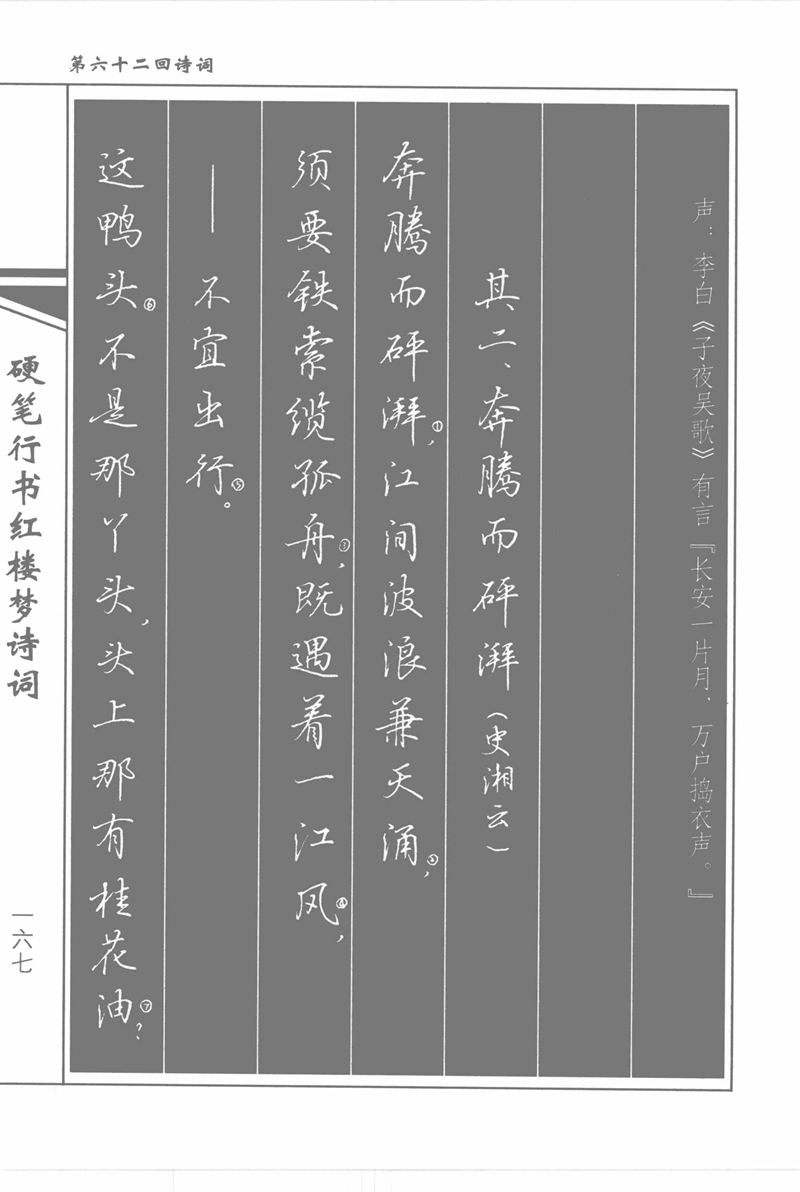 第六十二回诗词
声：李白《子夜吴歌》有言『长安一片月，万户捣衣声。』
其二、奔腾而砰湃（史湘云）
奔腾而砰湃①，江间波浪兼天涌②，
须要铁索缆孤舟③，既遇着一江风④，
——不宜出行⑤。
这鸭头⑥不是那丫头，头上那有桂花油⑦？
硬笔行书红楼梦诗词
一六七